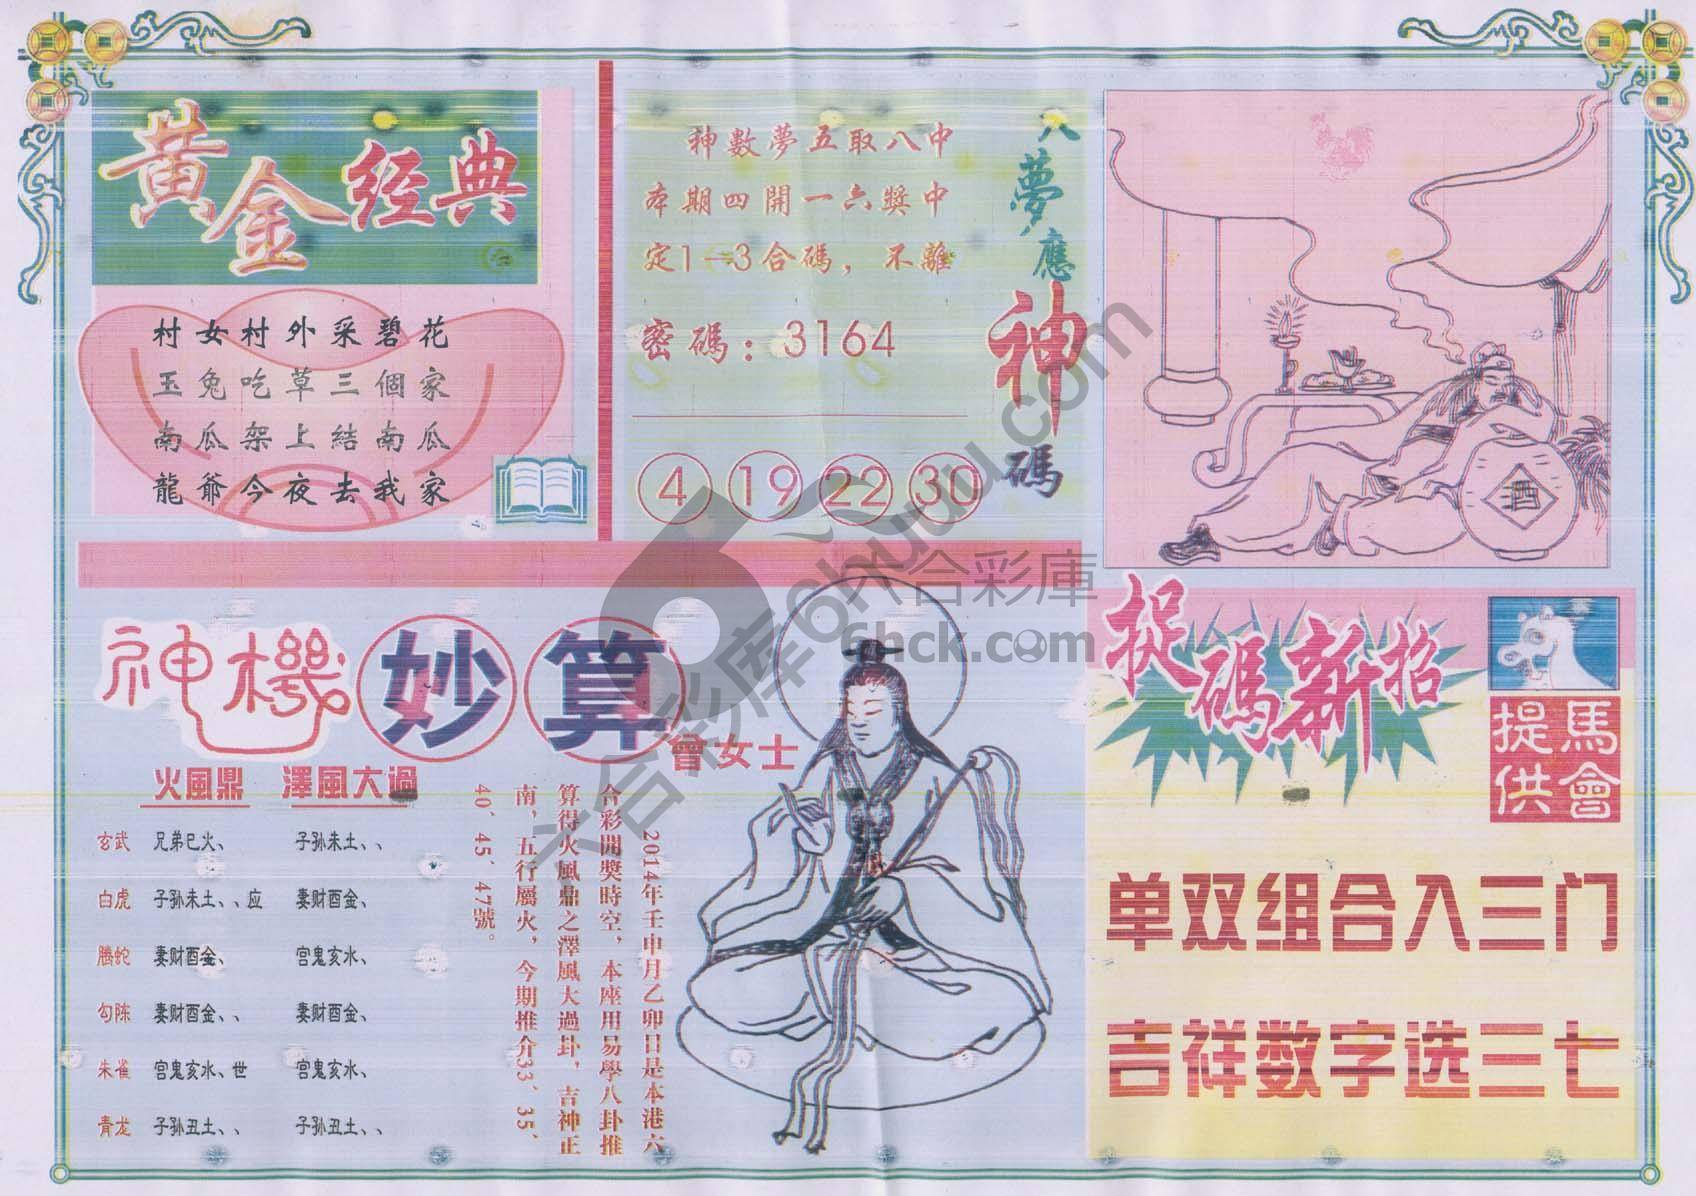 黄金经典
村女村外采碧花
玉兔吃草三個家
南瓜架上結南瓜
龍爺今夜去我家
神數夢五取八中
本期四開一六獎中
定1—3合碼，不離
密碼：3164
4 19 22 30
八夢應神碼
酉
神機妙算
曾女士
火風鼎 澤風大過
玄武 兄弟巳火、 子孙未土、、
白虎 子孙未土、、应 妻财酉金、
腾蛇 妻财酉金、 官鬼亥水、
勾陈 妻财酉金、、 妻财酉金、
朱雀 官鬼亥水、世 官鬼亥水、
青龙 子孙丑土、、 子孙丑土、、
2014年壬申月乙卯日是本港六
合彩開獎時空，本座用易學八卦推
算得火風鼎之澤風大過卦，吉神正
南，五行屬火，今期推介33、35、
40、45、47號。
捉碼新招
馬會提供
单双组合入三门
吉祥数字选三七
六合彩库6huwu.com
六合彩庫
6hck.com